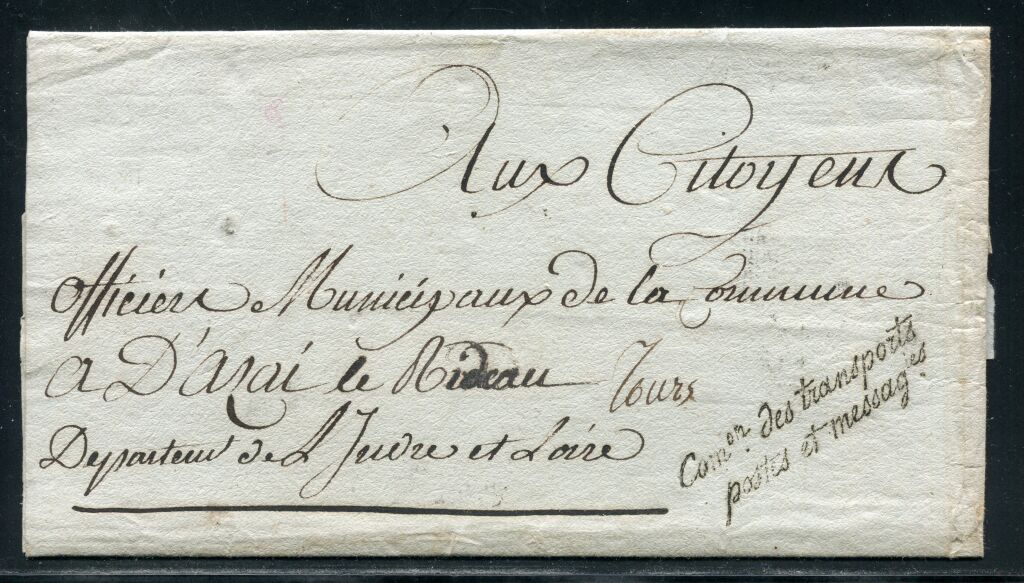 Aux Citoyens
Officiers Municipaux de la Commune
a D'azai le Rideau Tours
Departem.t de L'Indre et Loire
Com.on des transports
postes et messag.ies